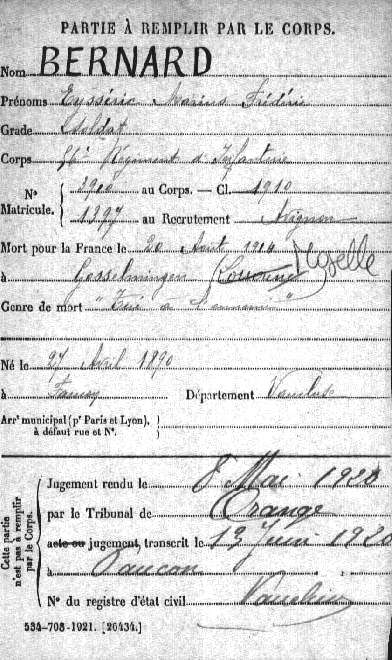 PARTIE À REMPLIR PAR LE CORPS.
Nom BERNARD
Prénoms Eysséric Marius Frédéric
Grade Soldat
Corps Régiment d'Infanterie
Nº Matricule. { 2910 au Corps. — Cl. 1910
1397 au Recrutement Avignon
Mort pour la France le 20 Août 1914
à Gosselmingen (Lorraine) Moselle
Genre de mort "Tué à l'ennemi"
Né le 27 Avril 1890
à Département Vaucluse
Arrᵗ municipal (pʳ Paris et Lyon), à défaut rue et Nº.
Cette partie n'est pas à remplir par le Corps.
Jugement rendu le 8 Mai 1920
par le Tribunal de Orange
acte ou jugement, transcrit le 13 Juin 1920
à Faucon
Nº du registre d'état civil Vaucluse
534-708-1921. [26434.]